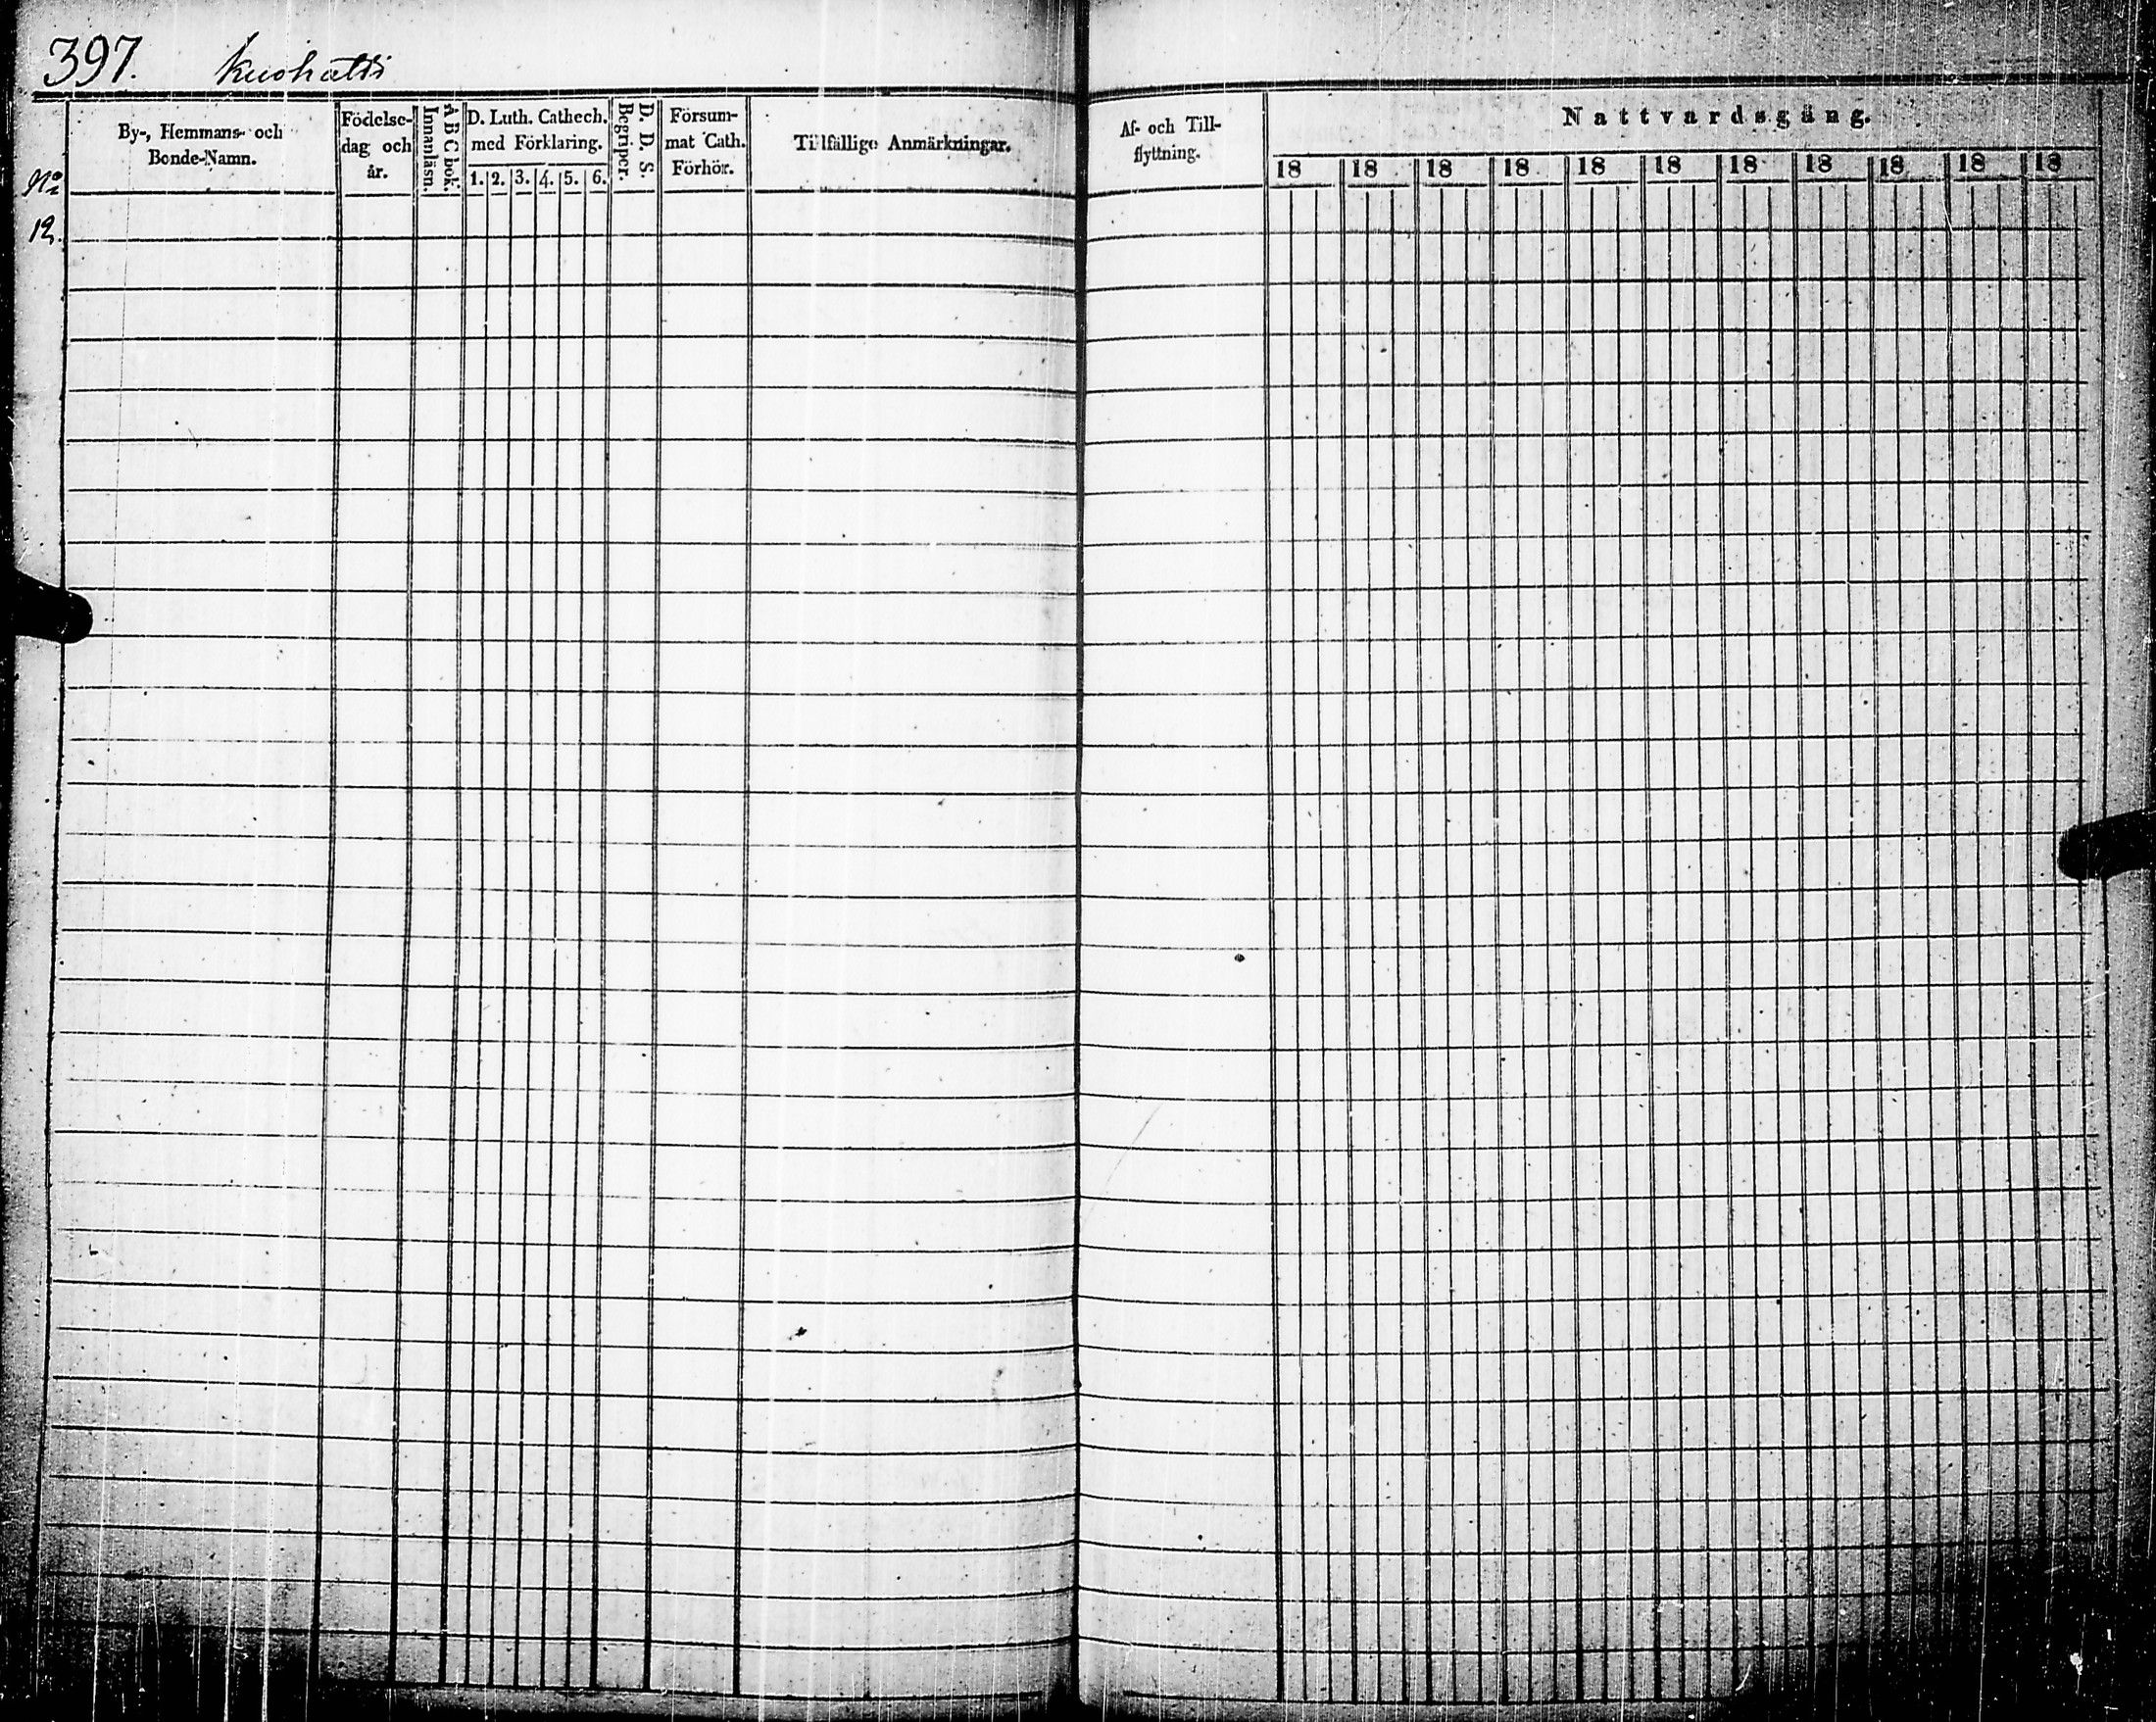 397. Kuohatti
No
By-, Hemmans- och
Bonde-Namn.
Födelse-
dag och
år.
A B C bok.
Innanläsn.
D. Luth. Cathech.
med Förklaring.
1. 2. 3. 4. 5. 6.
D. D. S.
Begriper.
Försum-
mat Cath.
Förhör.
Tillfällige Anmärkningar.
Af- och Till-
flyttning.
Nattvardsgång.
18 18 18 18 18 18 18 18 18 18 18
12.